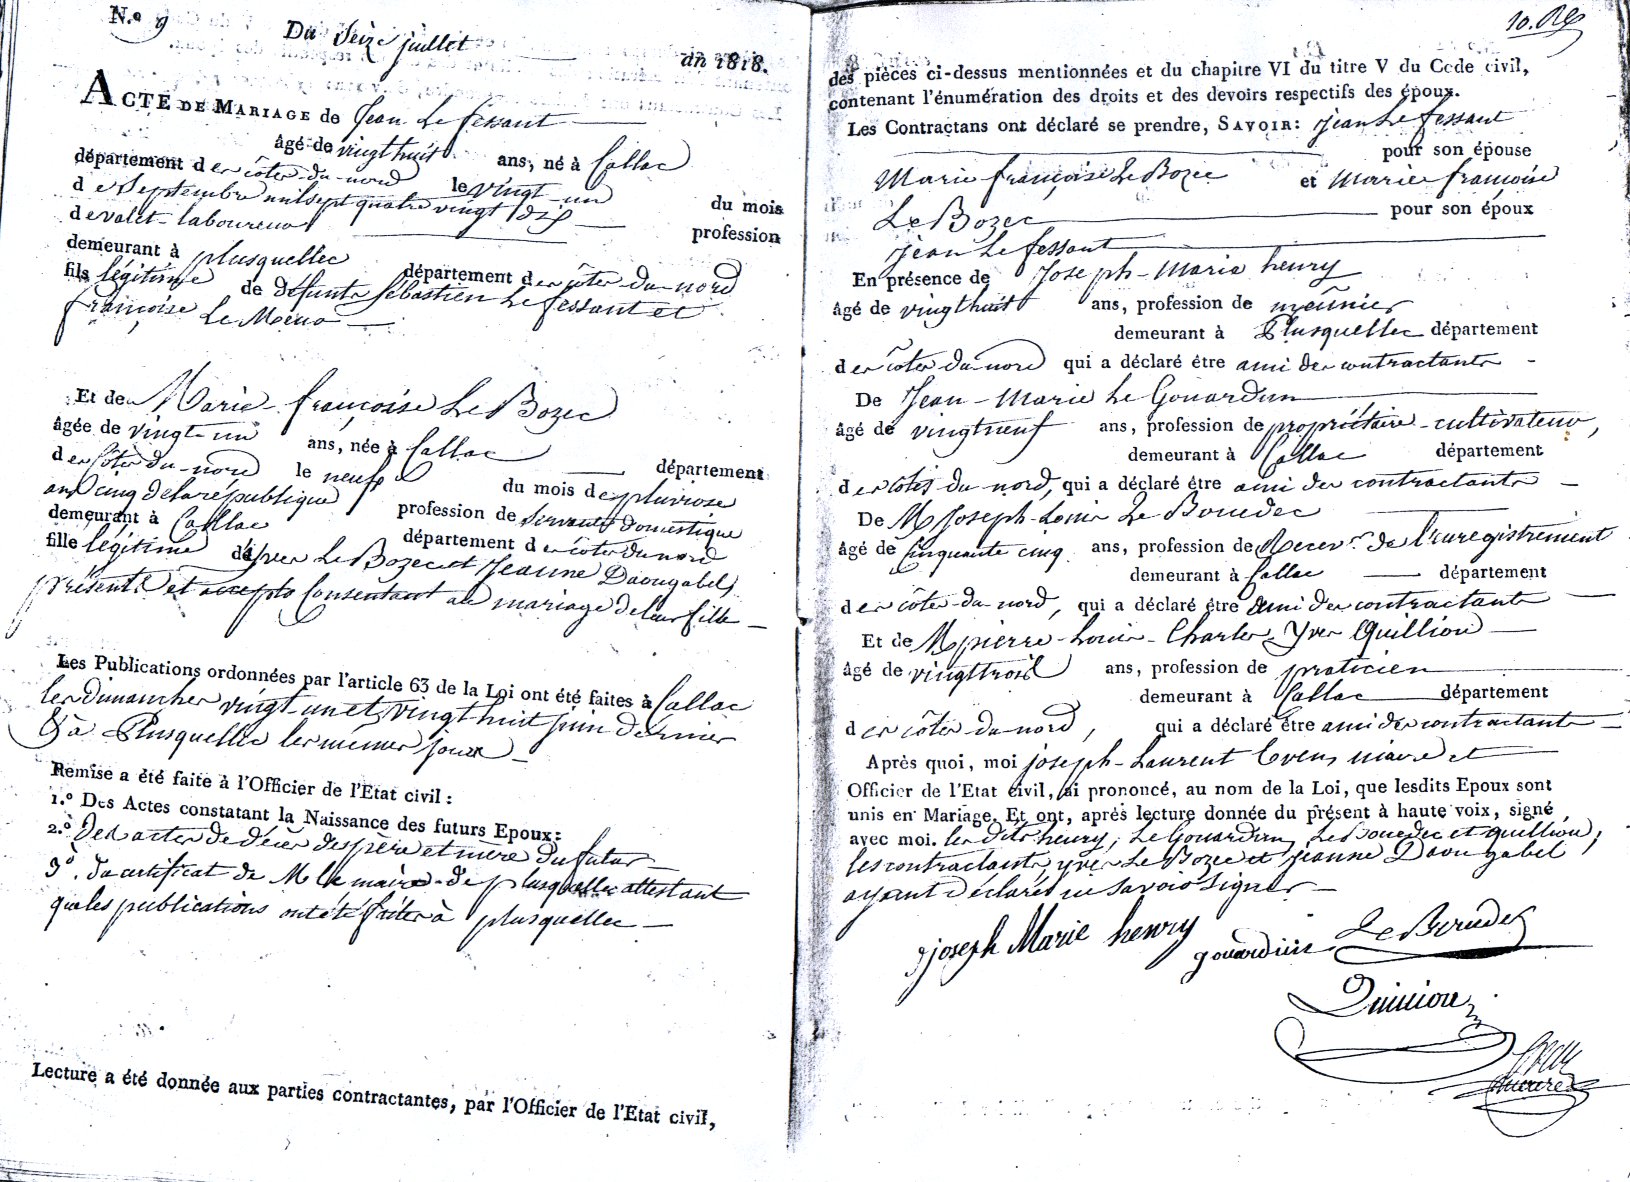 N.o 9
Du Seize juillet an 1818.
ACTE DE MARIAGE de Jean Le fessant
âgé de vingt huit ans, né à Callac
département des côtes-du-nord le vingt-un du mois
de Septembre mil sept quatre vingt dix profession
de valet-laboureur
demeurant à plusquellec département des côtes-du-nord
fils légitime de défunts Sébastien Le fessant et
françoise Le
Et de Marie-françoise Le Bozec
âgée de vingt-un ans, née à Callac département
des Côtes-du-nord le neuf du mois de pluviose
an cinq de la république profession de servante domestique
demeurant à Callac département des côtes du nord
fille légitime d'yves Le Bozec et Jeanne Daougabel
présents et Consentant au mariage de leur fille
Les Publications ordonnées par l'article 63 de la Loi ont été faites à Callac
les dimanches vingt-un et vingt huit juin dernier
& à Plusquellec les mêmes jours
Remise a été faite à l'Officier de l'Etat civil :
1.o Des Actes constatant la Naissance des futurs Epoux:
2.o Des actes de décès des père et mère du futur
3o. du certificat de M le maire de plusquellec attestant
que les publications ont été faites à plusquellec
Lecture a été donnée aux parties contractantes, par l'Officier de l'Etat civil,
10.
des pièces ci-dessus mentionnées et du chapitre VI du titre V du Code civil,
contenant l'énumération des droits et des devoirs respectifs des époux.
Les Contractans ont déclaré se prendre, SAVOIR: jean Le fessant
pour son épouse
Marie françoise Le Bozec et Marie françoise
Le Bozec pour son époux
jean Le fessant
En présence de Joseph-Marie henry
âgé de vingt huit ans, profession de meûnier
demeurant à Plusquellec département
des côtes-du-nord qui a déclaré être ami des contractants
De Jean-Marie Le Gouardun
âgé de vingt neuf ans, profession de propriétaire-cultivateur,
demeurant à Callac département
des cotes du nord, qui a déclaré être ami des contractants
De M Joseph-Louis Le Bouedec
âgé de Cinquante cinq ans, profession de Recev.r de l'enregistrement
demeurant à Callac département
des côtes-du-nord, qui a déclaré être ami des contractants
Et de M pierre-Louis-Charles-Yves Quilliou
âgé de vingt trois ans, profession de praticien
demeurant à Callac département
des côtes-du-nord, qui a déclaré être ami des contractants
Après quoi, moi joseph-Laurent maire et
Officier de l'Etat civil, ai prononcé, au nom de la Loi, que lesdits Epoux sont
unis en Mariage. Et ont, après lecture donnée du présent à haute voix, signé
avec moi. les dits henry, Le Gouardun, Le Bouedec et quilliou,
les contractants, yves Le Bozec et jeanne Daougabel
ayant déclarés ne savoir signer
joseph Marie henry